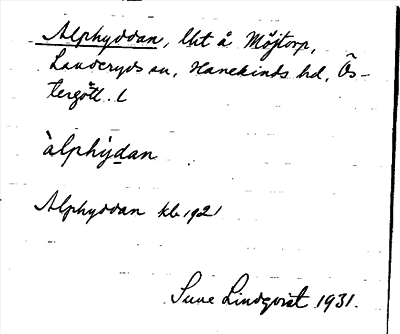 Alphyddan, lht å Möjtorp,
Landeryds sn, Hanekinds hd, Ös-
tergötl. L
àlphy̆dan
Alphyddan kb 1921
Sune Lindqvist 1931.